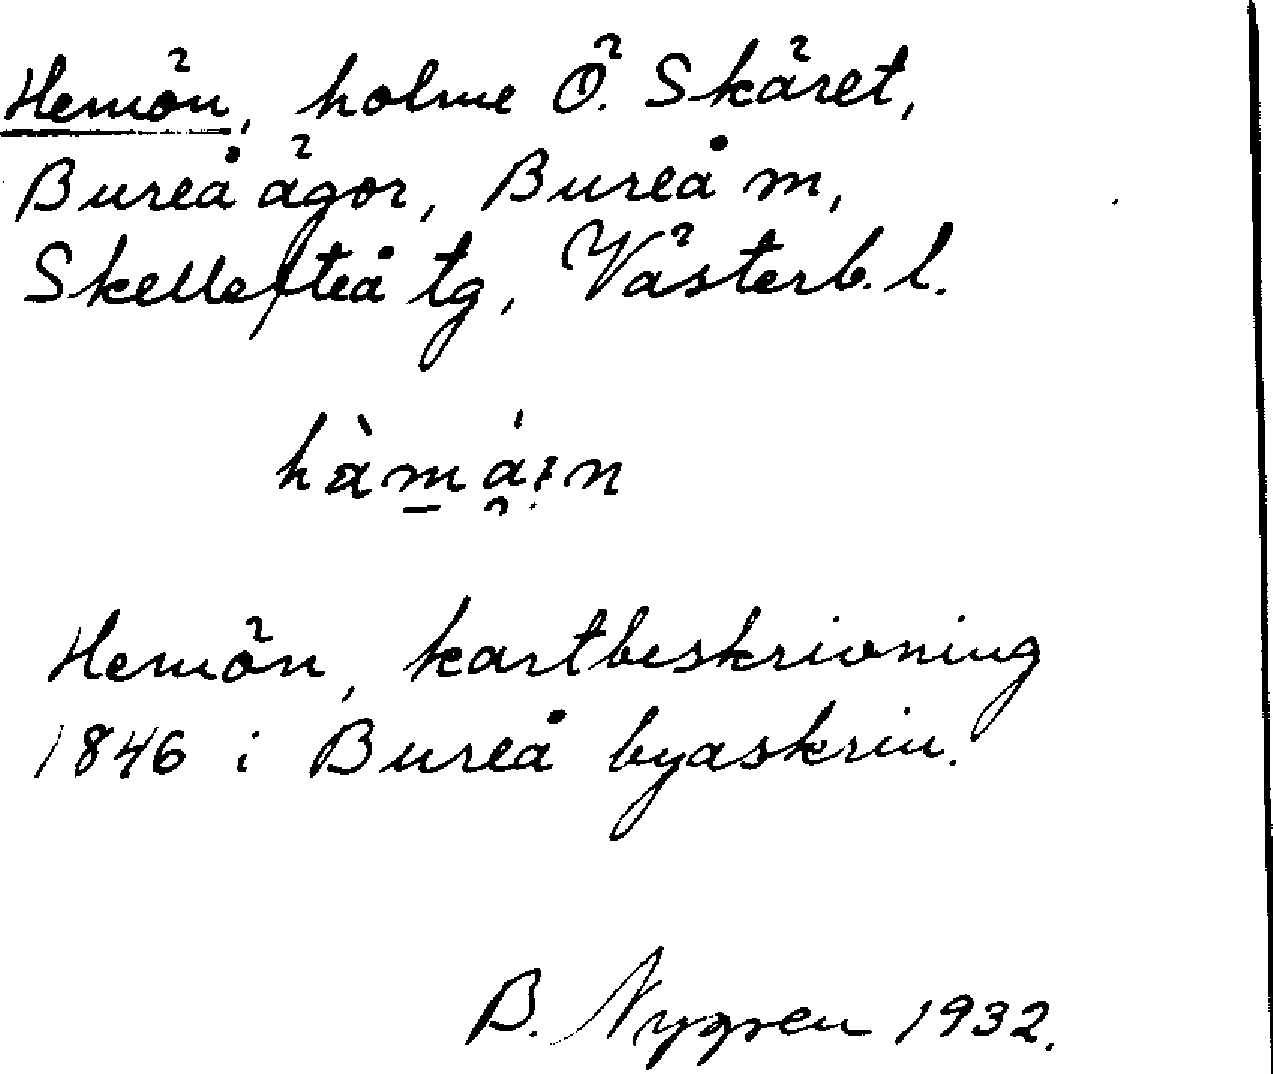 Hemön, holme Ö. Skäret,
Bureå ägor, Bureå m,
Skellefteå tg, Västerb. l.
Hemön, kartbeskrivning
1846 i Bureå byaskrin.
B. Nygren 1932.